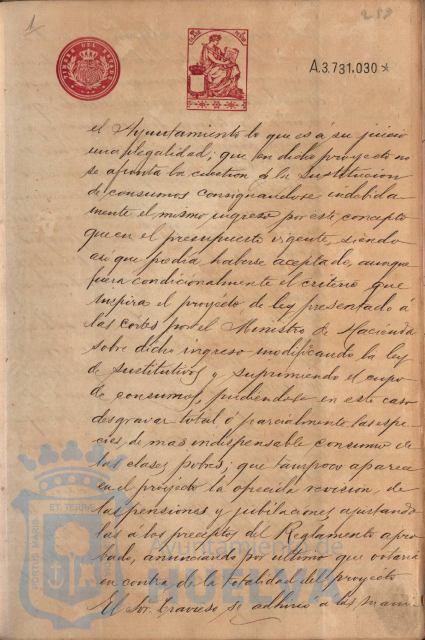 1
259
TIMBRE DEL ESTADO
A.3.731.030*
el Ayuntamiento lo que es á su juicio
una ilegalidad; que en dicho proyecto no
se apunta la cuestion de la sustitucion
de consumos consignandose indebida
mente el mismo ingreso por este concepto
que en el presupuesto vigente, siendo
asi que podia haberse aceptado, aunque
fuera condicionalmente el criterio que
inspira el proyecto de ley presentado á
las cortes por el Ministro de Hacienda
sobre dicho ingreso modificando la ley
de sustitutivos y suprimiendo el cupo
de consumos, pudiendose en este caso
desgravar total ó parcialmente las espe
cies de mas indispensable consumo de
las clases pobres; que tampoco aparece
en el proyecto la ofrecida revision de
las pensiones y jubilaciones ajustando
las á los preceptos del Reglamento apro
bado, anunciando por ultimo que votaria
en contra de la totalidad del proyecto
El Sor. Travieso se adhirió a las mani
PORTUS MARIS ET TERRE
Ayuntamiento de
HUELVA